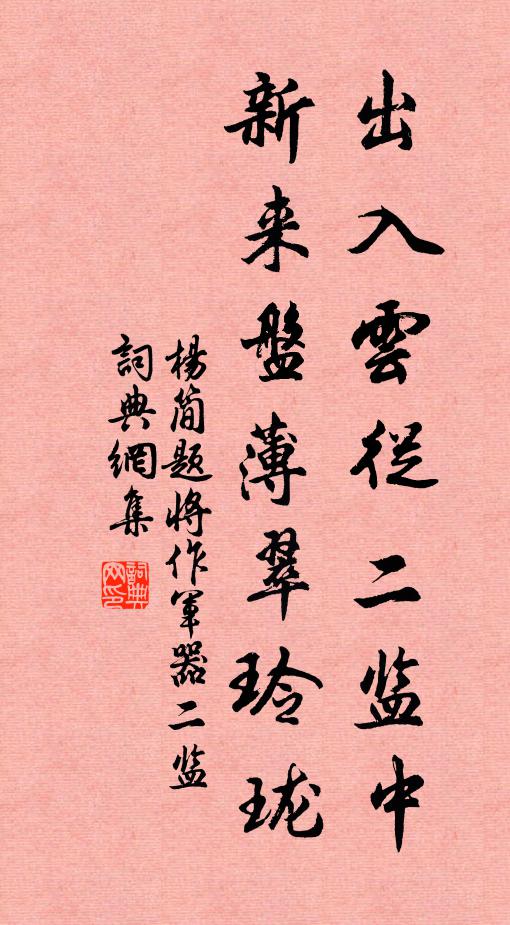 出入雲從二监中
新来盤薄翠玲珑
楊简题将作軍器二监
詞典網集
詞典网印